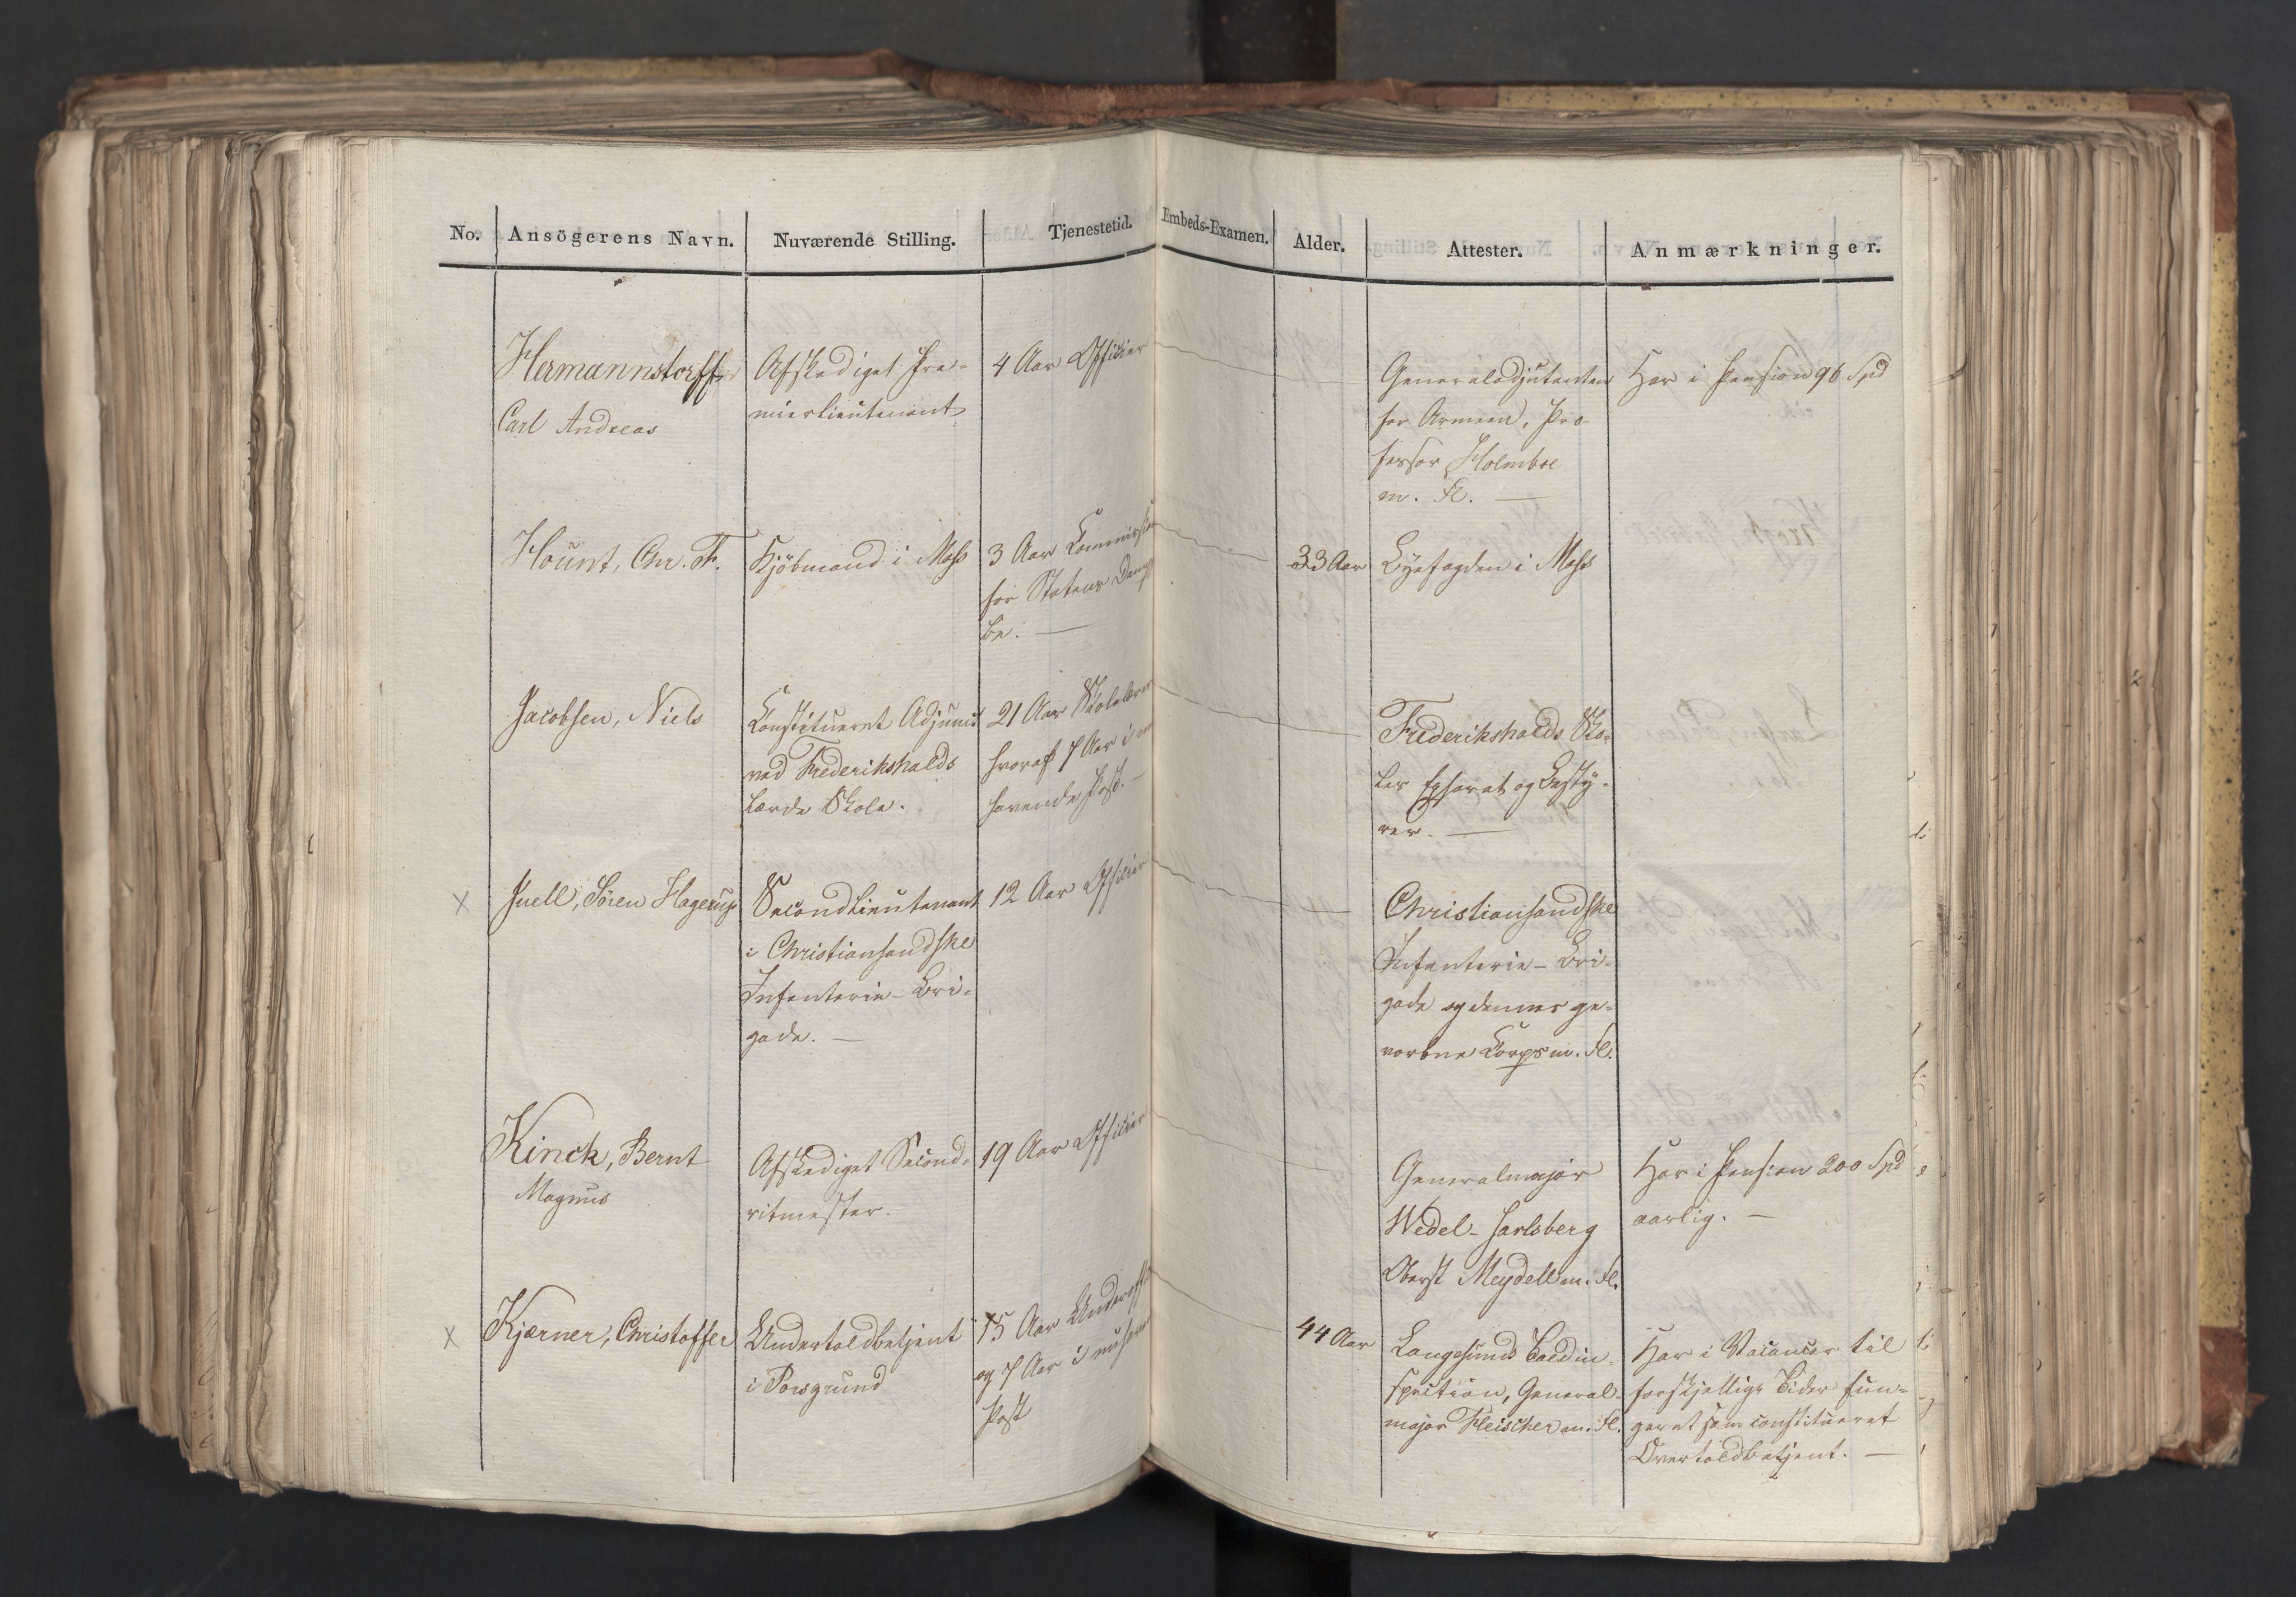 No. Ansögerens Navn. Nuværende Stilling. Tjenestetid. Embeds-Examen. Alder. Attester. Anmærkninger.
Hermannstorff,
Carl Andreas
Afskediget Pre-
mierlieutenant
4 Aar Officier
Generaladjutanten
for Armeen, Pro-
fessor Holmboe
m. Fl. —
Har i Pension 96 Spd
Hount, Chr. F.
Kjöbmand i Moss
3 Aar Commission
for Statens Damp
be. —
33 Aar
Byefogden i Moss
Jacobsen, Niels
Constitueret Adjunct
ved Frederikshalds
lærde Skole.
21 Aar Skolelærer
hvoraf 7 Aar i nu
havende Post. —
Frederikshalds Sko-
les Ephorat og Besty-
rer. —
x Juell, Sören Hagerup
Secondlieutenant
i Christiansandske
Infanterie-Bri-
gade. —
12 Aar Officier
Christiansandske
Infanterie-Bri-
gade og dennes ge-
vorbne Corps m. Fl.
Kinck, Bernt
Magnus
Afskediget Second-
ritmester.
19 Aar Officier
Generalmajor
Wedel-Jarlsberg
Oberst Meydell m. Fl.
Har i Pension 200 Spd
aarlig. —
x Kjærner, Christoffer
Undertoldbetjent
i Porsgrund
15 Aar Underoffic
og 7 Aar i nuhave
Post
44 Aar
Langesunds Toldin-
spection, General-
major Fleischer m. Fl.
Har i Vacancer til
forskjellige Tider fun-
geret som constitueret
Overtoldbetjent. —